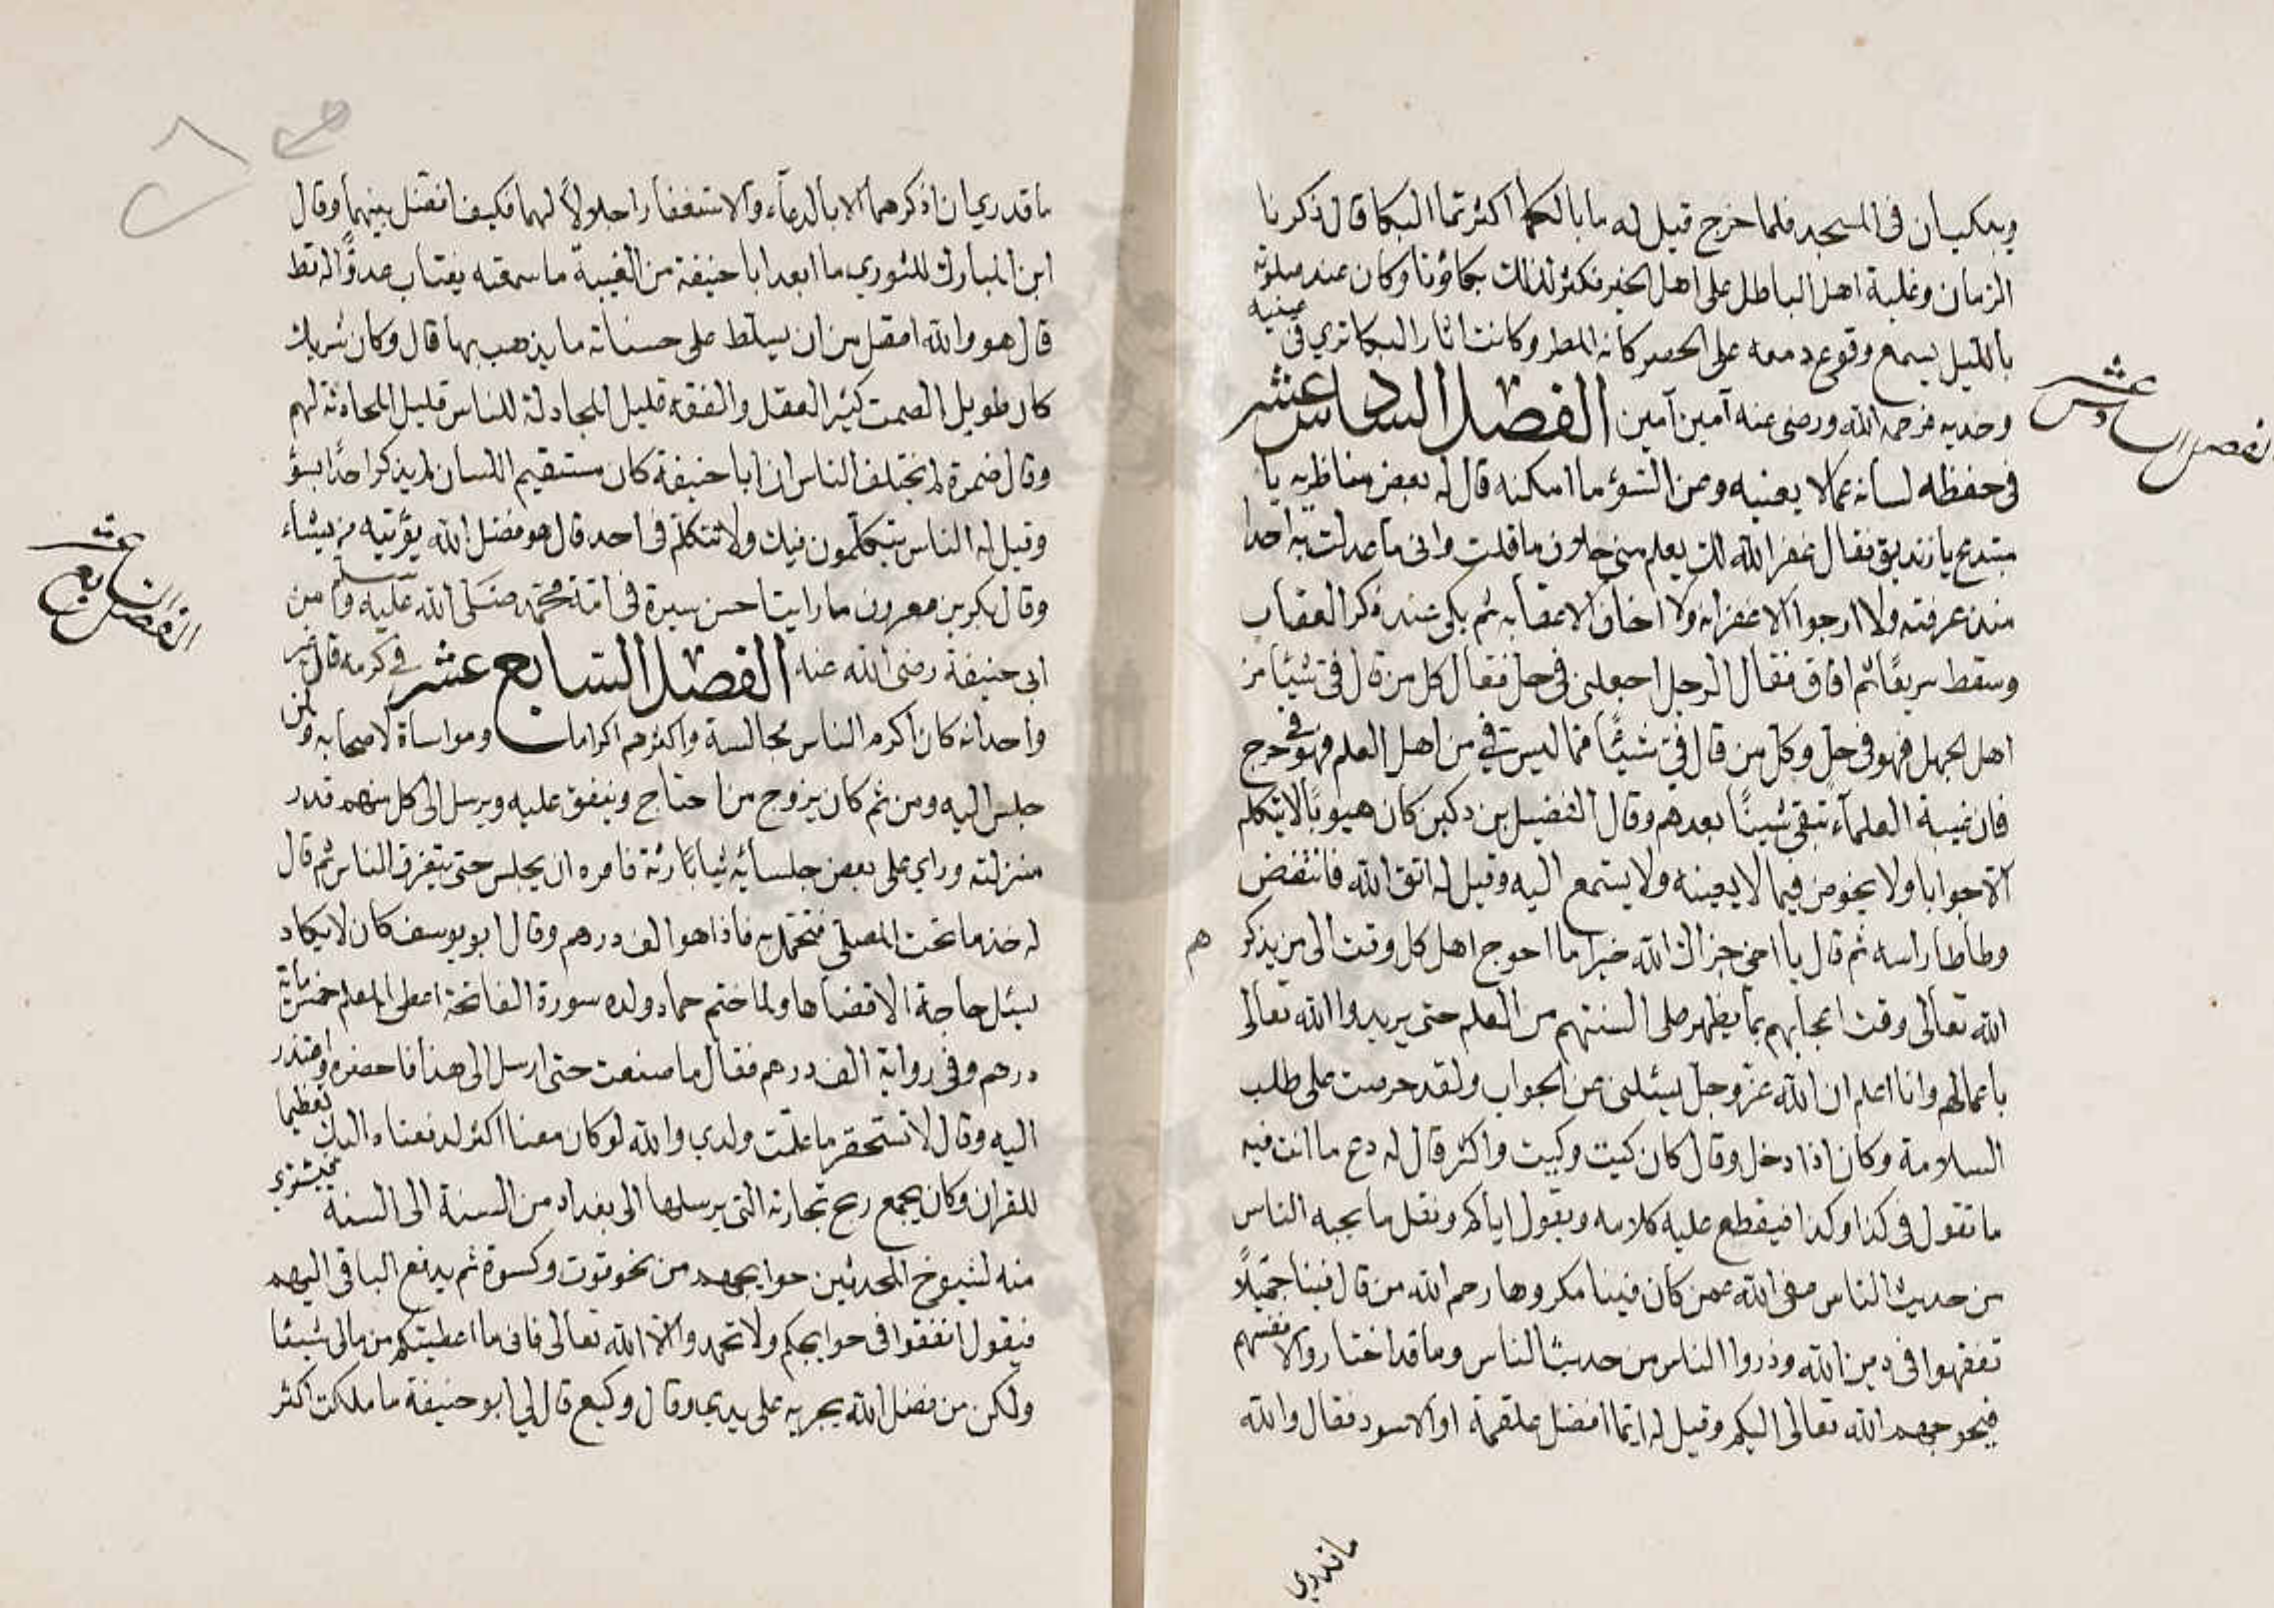 ويبكيان في المسجد فلما خرج قيل له ما بالكما اكثرتما البكا قال ذكرنا
الزمان وغلبة اهل الباطل على اهل الخير فكثر لذلك بكاؤنا وكان عند صلوته
بالليل يسمع وقوع دمعه على الحصر كانه المطر وكانت اثار البكا تري في عينيه
وخديه فرحمه الله ورضى عنه آمين آمين الفصل السادس عشر
في حفظه لسانه عما لا يعنيه وعن السوء ما امكنه قال له بعض مناظريه يا
مبتدع يا زنديق فقال غفر الله لك يعلم مني خلاف ما قلت وانى ما عدلت به احدا
منذ عرفته ولا ارجوا الا غفرانه ولا اخاف الا عقابه ثم بكى عند ذكر العقاب
وسقط سريعًا ثم افاق فقال الرجل اجعلنى في حل فقال كل من قال في شيئًا من
اهل الجهل فهو في حل وكل من قال في شيئًا مما ليس في من اهل العلم فهو في حرج
فان غيبة العلمآء تبقى شينًا بعدهم وقال الفضيل بن دكين كان هيوبًا لا يتكلم
الا جوابا ولا يخوض فيما لا يعينه ولا يستمع اليه وقيل له اتق الله فانتفض
وطأطا راسه ثم قال يا اخي جزاك الله خيرا ما احوج اهل كل وقت الى من يذكر
هم
الله تعالى وقت اعجابهم بما يظهر على السنتهم من العلم حتى يريدوا الله تعالى
باعمالهم وانا اعلم ان الله عز وجل يسئلنى عن الجواب ولقد حرصت على طلب
السلامة وكان اذا دخل وقال كان كيت وكيت واكثر قال له دع ما انت فيه
ما تقول في كذا وكذا فيقطع عليه كلامه ويقول اياكم ونقل ما يحبه الناس
من حديث الناس عفى الله عمن كان فينا مكروها رحم الله من قال فينا جميلًا
تفقهوا في دين الله وذروا الناس من حديث الناس وما قد اختاروا لانفسهم
فيحوجهم الله تعالى اليكم وقيل له ايما افضل علقمة او الاسود فقال والله
ما قدري
الفصل السادس عشر
ما قدري ان اذكرهما الا بالدعآء والاستغفار اجلالًا لهما فكيف افضل بينهما وقال
ابن المبارك للثوري ما ابعد ابا حنيفة من الغيبة ما سمعته يغتاب عدوًّا له قط
قال هو والله اعقل من ان يسلط على حسناته ما يذهب بها قال وكان شريك
كان طويل الصمت كثير العقل والفقه قليل المجادلة للناس قليل المحادثة لهم
وقال ضمرة لم يختلف الناس ان ابا حنيفة كان مستقيم اللسان لم يذكر احدًا بسؤ
وقيل له الناس يتكلمون فيك ولا تتكلم في احد قال هو فضل الله يؤتيه من يشاء
وقال بكر بن معروف ما رايت احسن سيرة في امة محمد صلى الله عليه وسلم من
ابى حنيفة رضى الله عنه الفصل السابع عشر في كرمه قال غير
واحد انه كان اكرم الناس مجالسة واكثرهم اكراما ومواساة لاصحابه ولمن
جلس اليه ومن ثم كان يزوج من احتاج وينفق عليه ويرسل الى كل منهم قدر
منزلته وراي على بعض جلسائه ثيابًا رثة فامره ان يجلس حتى يتفرق الناس ثم قال
له خذ ما تحت المصلى فتجمل به فاذا هو الف درهم وقال ابو يوسف كان لا يكاد
يسئل حاجة الا قضاها ولما ختم حماد ولده سورة الفاتحة اعطى المعلم خمسماية
درهم وفي رواية الف درهم فقال ما صنعت حتى ارسل الى هذا فاحضره واعتذر
اليه وقال لا تستحقر ما علمت ولدي والله لو كان معنا اكثر لدفعناه اليك تعظيما
للقران وكان يجمع ربح تجارته التى يرسلها الى بغداد من السنة الى السنة فيشترى
منه لشيوخ المحدثين حوايجهم من نحو قوت وكسوة ثم يدفع الباقى اليهم
فيقول انفقوا في حوايجكم ولا تحمدوا الا الله تعالى فانى ما اعطيتكم من مالى شيئا
ولكن من فضل الله يجريه على يدي وقال وكيع قال لي ابو حنيفة ما ملكت اكثر
الفصل السابع عشر